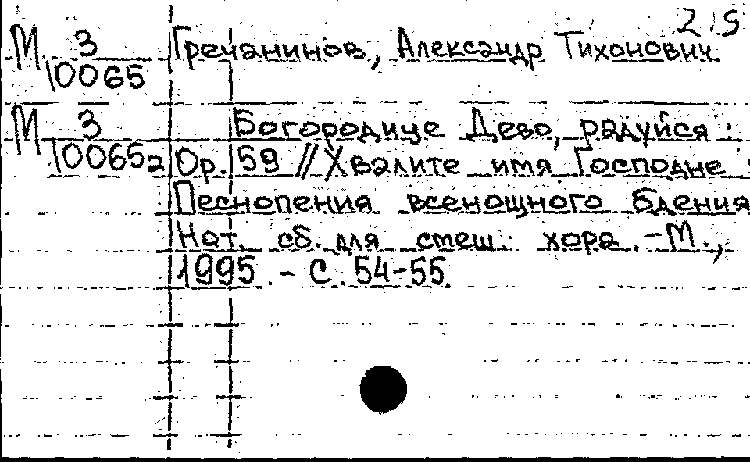 2.5
М 3 Гречанинов, Александр Тихонович
10065
М 3 Богородице Дево, радуйся :
10065а Ор. 59 // Хвалите имя Господне :
Песнопения всенощного бдения
Нот. сб. для смеш. хора. - М.,
1995. - С. 54-55.